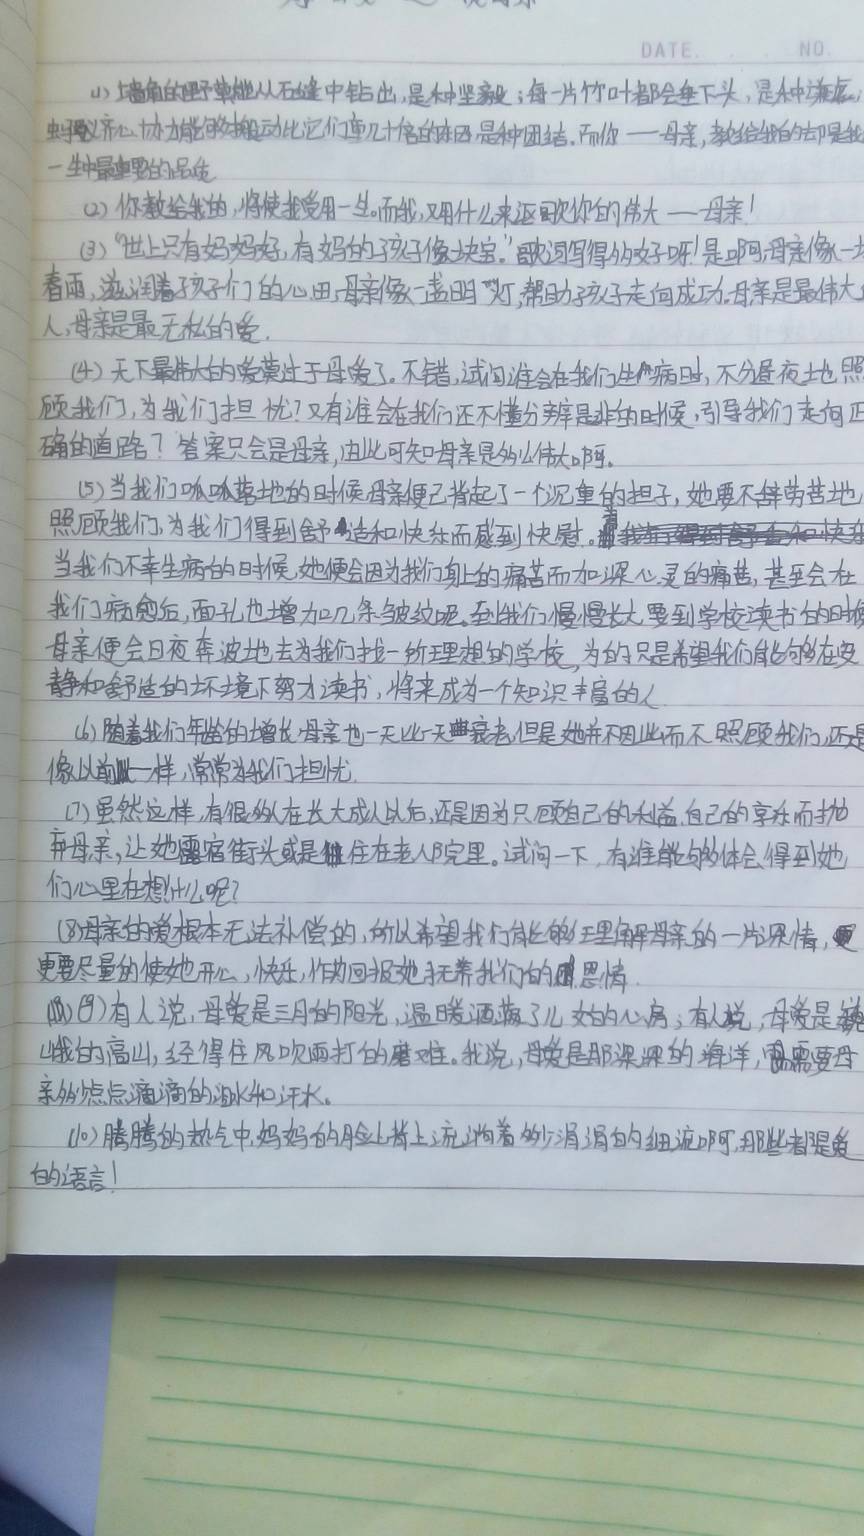 DATE. NO.
(1) 墙角的野草能从石缝中钻出,是种坚毅;每一片竹叶都会垂下头,是种谦虚;
蚂蚁齐心协力能够搬动比它们重几十倍的东西是种团结。而你——母亲,教给我的却是我
一生中最重要的品质
(2) 你教给我的,将使我受用一生。而我,又用什么来讴歌你的伟大——母亲!
(3)“世上只有妈妈好,有妈的孩子像块宝。”歌词写得多好呀!是啊,母亲像一场
春雨,滋润着孩子们的心田,母亲像一盏明灯,帮助孩子走向成功。母亲是最伟大的
人,母亲是最无私的爱.
(4) 天下最伟大的爱莫过于母爱了。不错,试问谁会在我们生病时,不分昼夜地照
顾我们,为我们担忧?又有谁会在我们还不懂分辨是非的时候,引导我们走向正
确的道路?答案只会是母亲,由此可知母亲是多么伟大啊。
(5) 当我们呱呱落地的时候,母亲便已背起了一个沉重的担子,她要不辞劳苦地
照顾我们,为我们得到舒适和快乐而感到快慰。
当我们不幸生病的时候,她便会因为我们身上的痛苦而加深心灵的痛苦,甚至会在
我们病愈后,面孔也增加几条皱纹呢。到我们慢慢长大,要到学校读书的时候
母亲便会日夜奔波地去为我们找一所理想的学校,为的只是希望我们能够在安
静和舒适的环境下努力读书,将来成为一个知识丰富的人
(6) 随着我们年龄的增长,母亲也一天比一天衰老,但是她并不因此而不照顾我们,还是
像以前一样,常常为我们担忧.
(7) 虽然这样,有很多人在长大成人以后,还是因为只顾自己的利益,自己的享乐而抛
弃母亲,让她露宿街头或是住在老人院里。试问一下,有谁能够体会得到她
们心里在想什么呢?
(8) 母亲的爱根本无法补偿的,所以希望我们能够理解母亲的一片深情,
更要尽量的使她开心,快乐,作为回报她抚养我们的恩情.
(9) 有人说,母爱是三月的阳光,温暖洒满了儿女的心房;有人说,母爱是巍
峨的高山,经得住风吹雨打的磨难。我说,母爱是那深深的海洋,需要母
亲多少点点滴滴的泪水和汗水。
(10) 腾腾的热气中,妈妈的脸上背上流淌着多少涓涓的细流啊,那些都是爱
的语言!